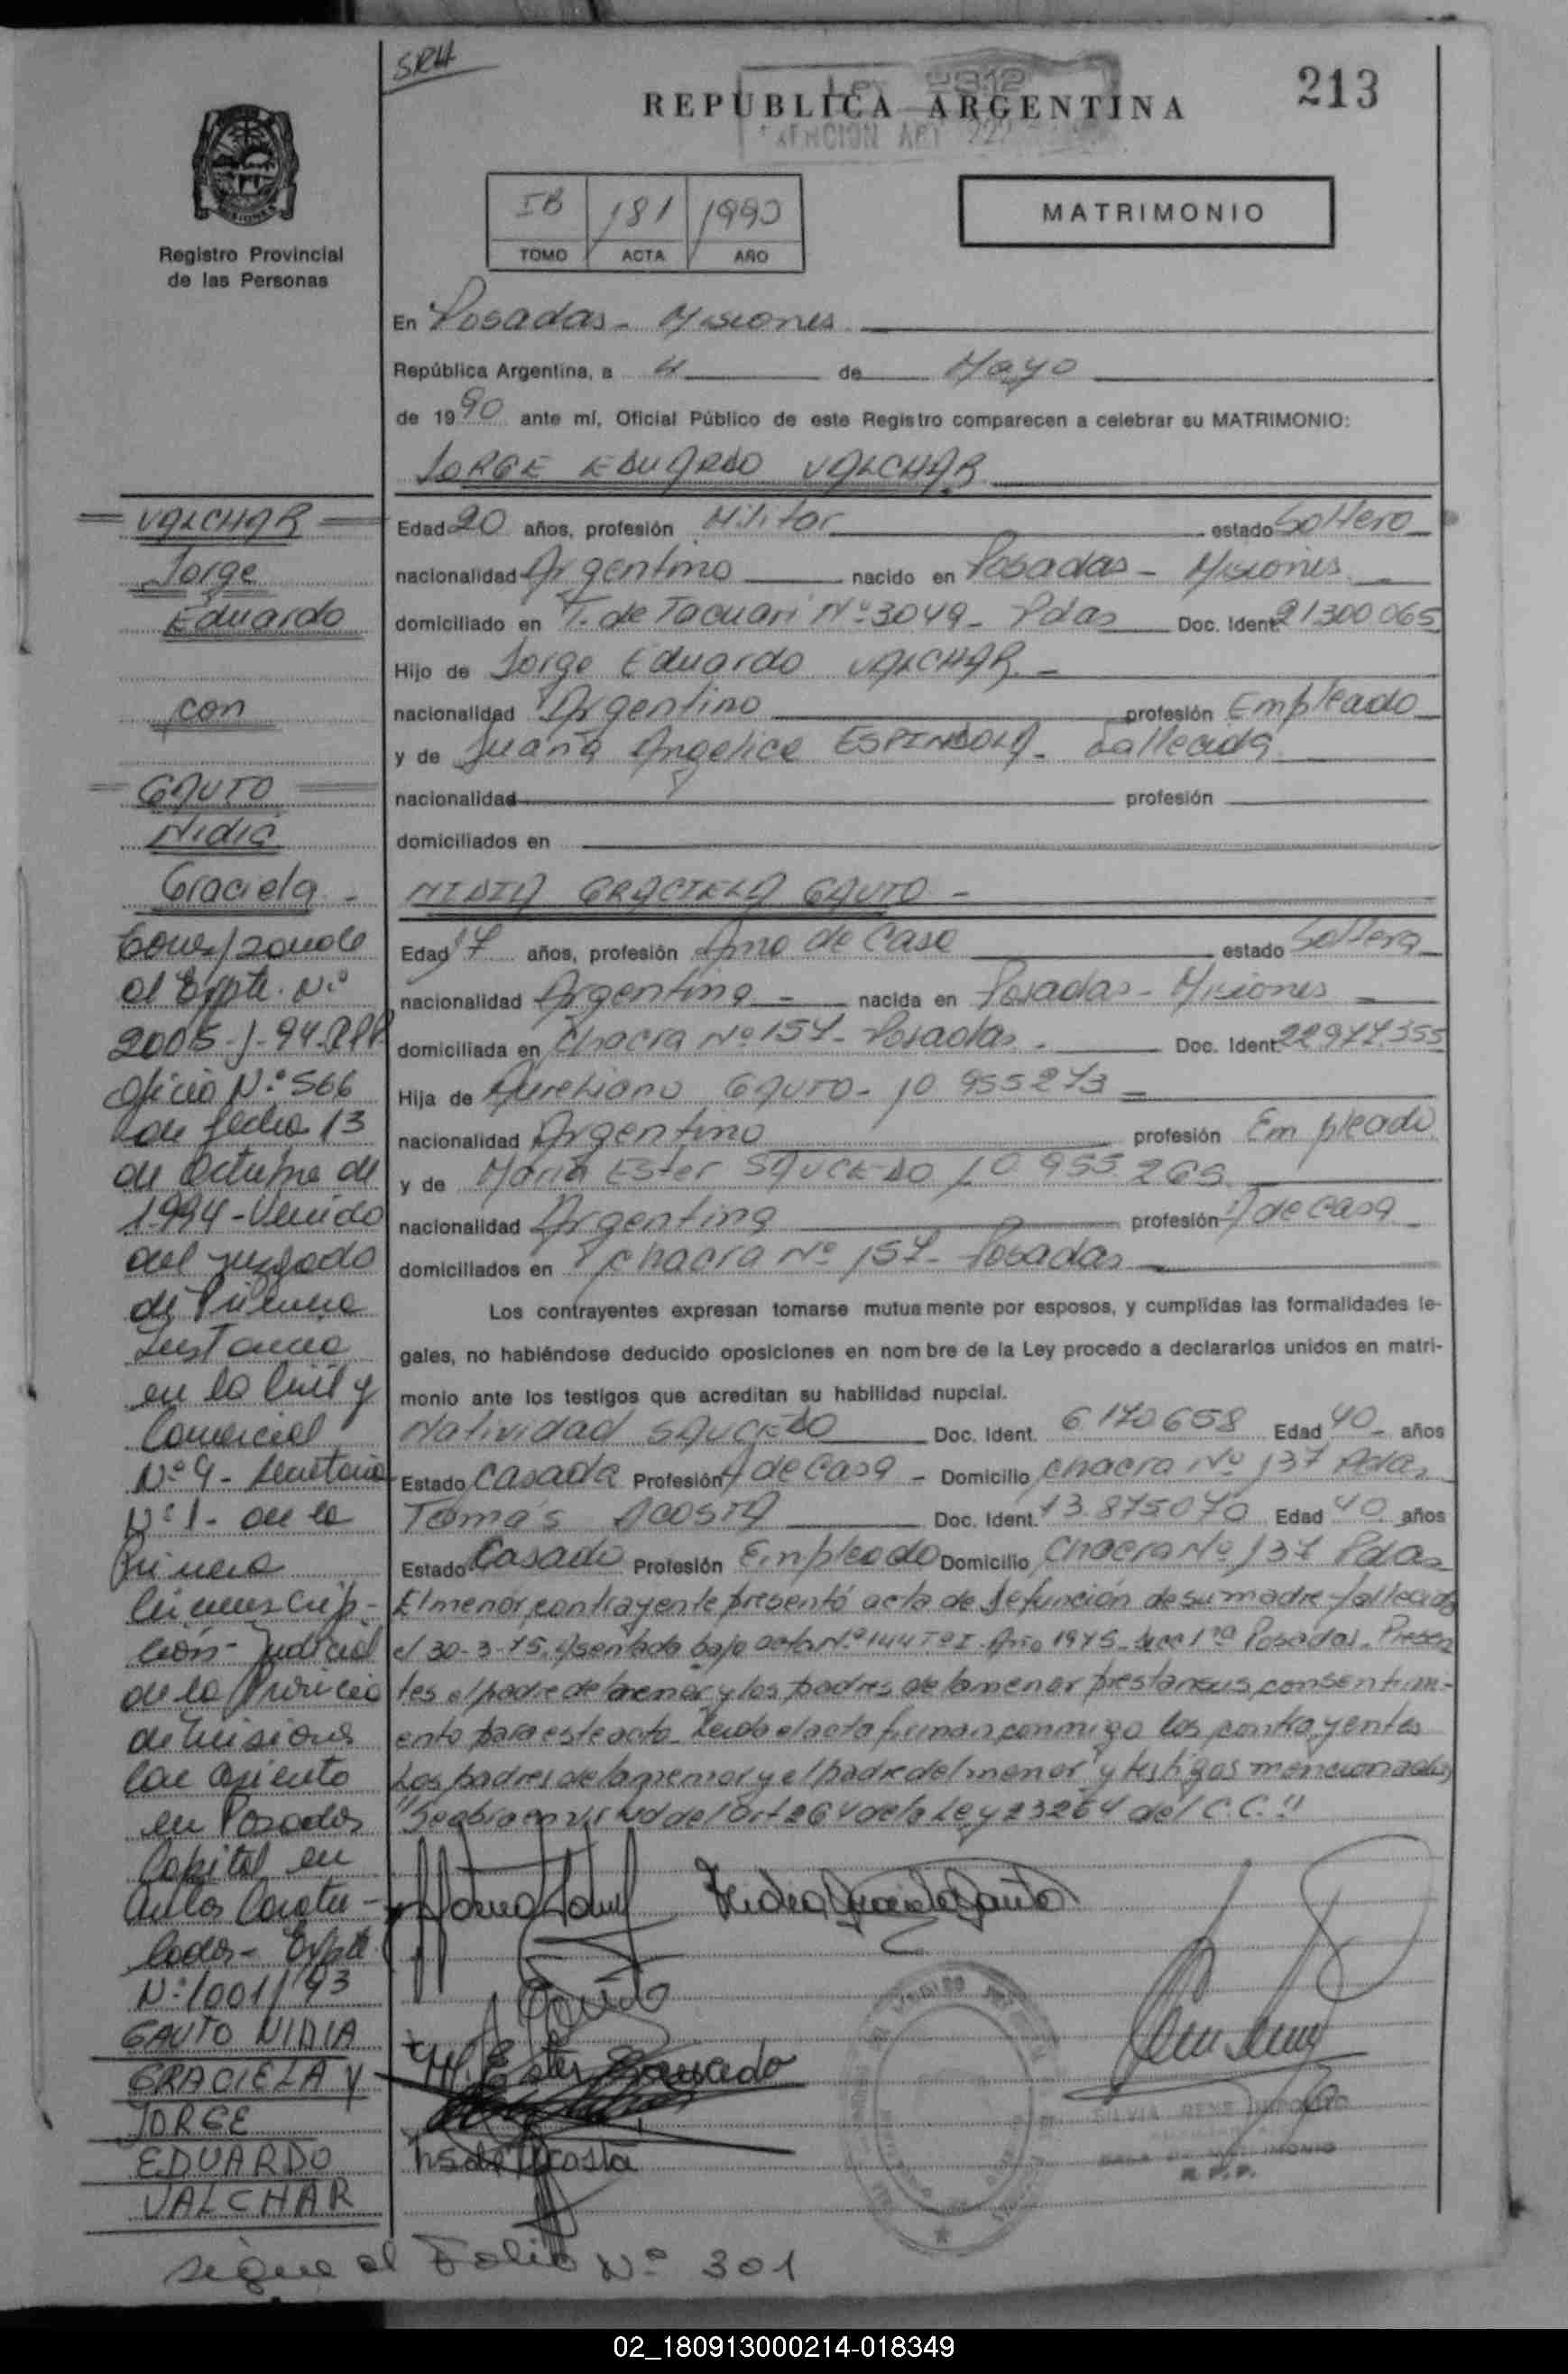 SRH
213
Ley 2312
REPUBLICA ARGENTINA
EXENCION ART 222
Registro Provincial
de las Personas
IB 181 1990
TOMO ACTA AÑO
MATRIMONIO
En Posadas - Misiones
República Argentina, a 4 de Mayo
de 1990 ante mí, Oficial Público de este Registro comparecen a celebrar su MATRIMONIO:
JORGE EDUARDO VALCHAR
Edad 20 años, profesión Militar estado Soltero
nacionalidad Argentino nacido en Posadas - Misiones
domiciliado en T. de Tacuari Nº 3049 - Pdas Doc. Ident. 21300065
Hijo de Jorge Eduardo VALCHAR -
nacionalidad Argentino profesión Empleado
y de Juana Angelica ESPINDOLA - Fallecida
nacionalidad profesión
domiciliados en
NIDIA GRACIELA GAUTO -
Edad 17 años, profesión Ama de Casa estado Soltera
nacionalidad Argentina - nacida en Posadas - Misiones
domiciliada en Chacra Nº 157 - Posadas - Doc. Ident. 22977355
Hija de Aureliano GAUTO - 10 955273 -
nacionalidad Argentino profesión Empleado
y de Maria Ester SAUCEDO 10 955 269
nacionalidad Argentina profesión A de Casa
domiciliados en Chacra Nº 157 - Posadas
Los contrayentes expresan tomarse mutuamente por esposos, y cumplidas las formalidades le-
gales, no habiéndose deducido oposiciones en nombre de la Ley procedo a declararlos unidos en matri-
monio ante los testigos que acreditan su habilidad nupcial.
Natividad SAUCEDO Doc. Ident. 6170658 Edad 40 años
Estado Casada Profesión A de Casa - Domicilio Chacra Nº 137 Pdas
Tomás ACOSTA Doc. Ident. 13.875070 Edad 40 años
Estado Casado Profesión Empleado Domicilio Chacra Nº 137 Pdas
El menor contrayente presentó acta de defunción de su madre fallecida
el 30-3-75, Asentada bajo acta Nº 144 Tº I - Año 1975 - Secc 1ra Posadas - Presen
tes el padre del menor y los padres de la menor prestan sus consentimi-
ento para este acto. Leida el acta firman conmigo los contrayentes
Los padres de la menor y el padre del menor y testigos mencionados
"Se obra en virtud del Art 264 de la Ley 23264 del C.C."
Nidia Graciela Gauto
M. Ester Saucedo
Acosta
SALA DE MATRIMONIO
R.P.P.
VALCHAR
Jorge
Eduardo
con
GAUTO
Nidia
Graciela -
Corresponde
al Expte. Nº
2005-J-94-RPP
Oficio Nº 566
de fecha 13
de Octubre de
1994 - Venido
del Juzgado
de Primera
Instancia
en lo Civil y
Comercial
Nº 4 - Secretaria
Nº 1 - de la
Primera
Circunscrip-
ción - Judicial
de la Provincia
de Misiones
con asiento
en Posadas
Capital en
Autos Caratu-
lados - Expte
Nº 1001/93
GAUTO NIDIA
GRACIELA Y
JORGE
EDUARDO
VALCHAR
sigue al Folio Nº 301
02_180913000214-018349